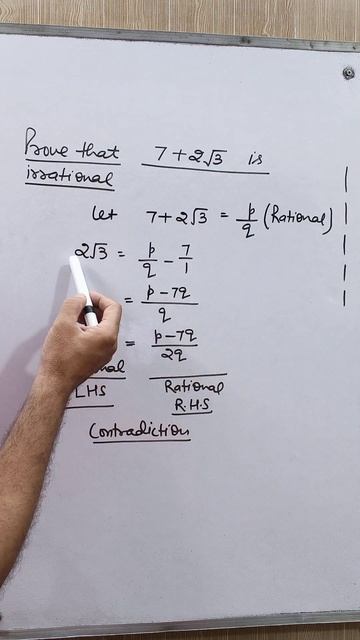 Prove that 7+2√3 is
irrational
Let 7+2√3 = p/q (Rational)
2√3 = p/q - 7/1
= p-7q/q
= p-7q/2q
Rational
LHS R.H.S
Contradiction